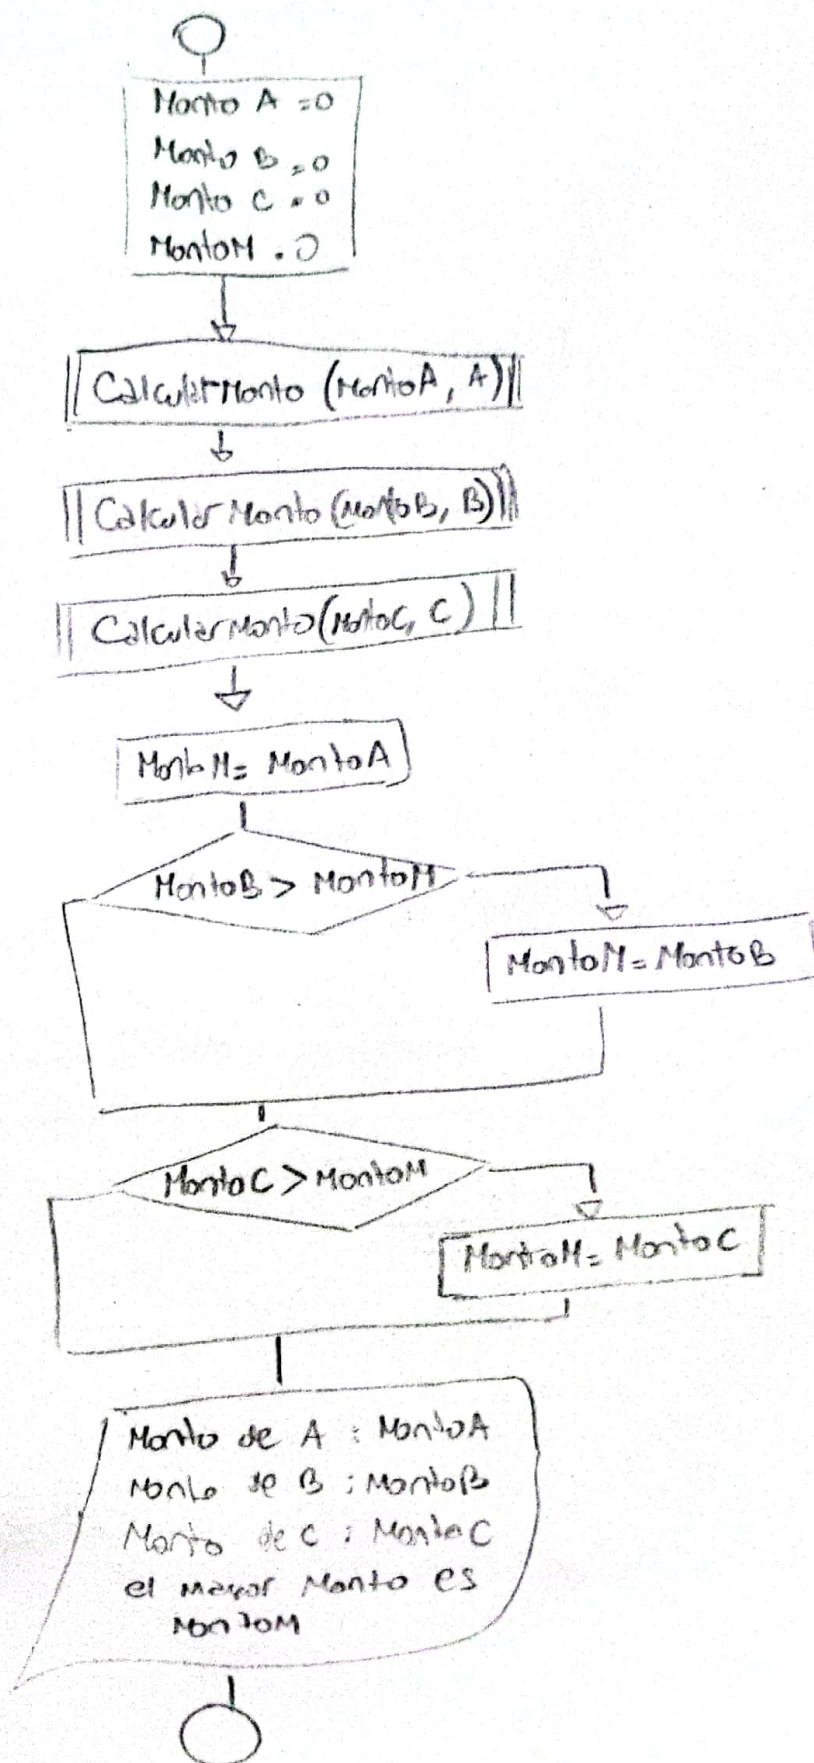 Monto A =0
Monto B =0
Monto C = 0
MontoM = 0
CalcularMonto (MontoA, A)
Calcular Monto (MontoB, B)
CalcularMonto(MontoC, C)
MontoM= MontoA
MontoB > MontoM
MontoM= MontoB
MontoC > MontoM
MontoM= MontoC
Monto de A : MontoA
Monto de B : MontoB
Monto de C : MontoC
el mayor Monto es
MontoM